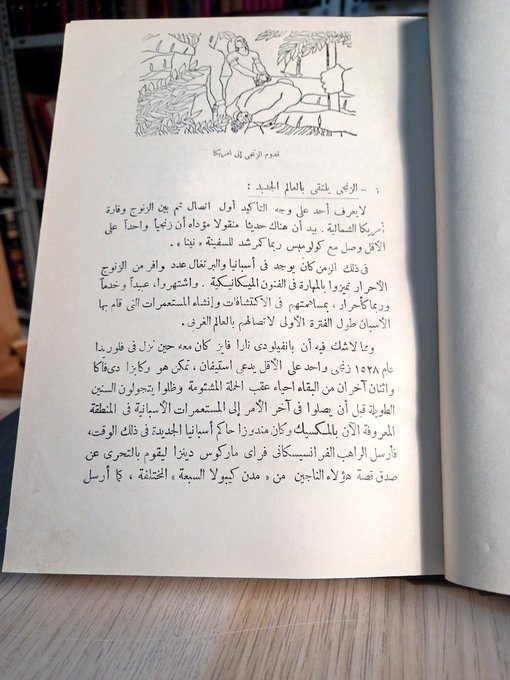 قدوم الزنجى إلى امريكا
١ – الزنجى يلتقى بالعالم الجديد :
لا يعرف أحد على وجه التأكيد أول اتصال تم بين الزنوج وقارة
أمريكا الشمالية . بيد أن هناك حديثا منقولا مؤداه أن زنجياً واحداً على
الأقل وصل مع كولومبس ربما كمرشد للسفينة « نينا » .
فى ذلك الزمن كان يوجد فى أسبانيا والبرتغال عدد وافر من الزنوج
الأحرار تميزوا بالمهارة فى الفنون الميكانيكية . واشتهروا عبيداً وخدماً
وربما كأحرار ، بمساهمتهم فى الاكتشافات وإنشاء المستعمرات التى قام بها
الأسبان طول الفترة الأولى لاتصالهم بالعالم الغربى .
ومما لاشك فيه أن بانفيلودى نارا فايز كان معه حين نزل فى فلوريدا
عام ١٥٢٨ زنجى واحد على الأقل يدعى استيفان ، تمكن هو وكابزا دى فاكا
واثنان آخران من البقاء احياء عقب الحملة المشئومة وظلوا يتجولون السنين
الطويلة قبل أن يصلوا فى آخر الأمر إلى المستعمرات الاسبانية فى المنطقة
المعروفة الآن بالمكسيك وكان مندوزا حاكم أسبانيا الجديدة فى ذلك الوقت،
فأرسل الراهب الفرانسيسكانى فراى ماركوس دينزا ليقوم بالتحرى عن
صدق قصة هؤلاء الناجين من « مدن كيبولا السبعة » المختلفة ، كما أرسل